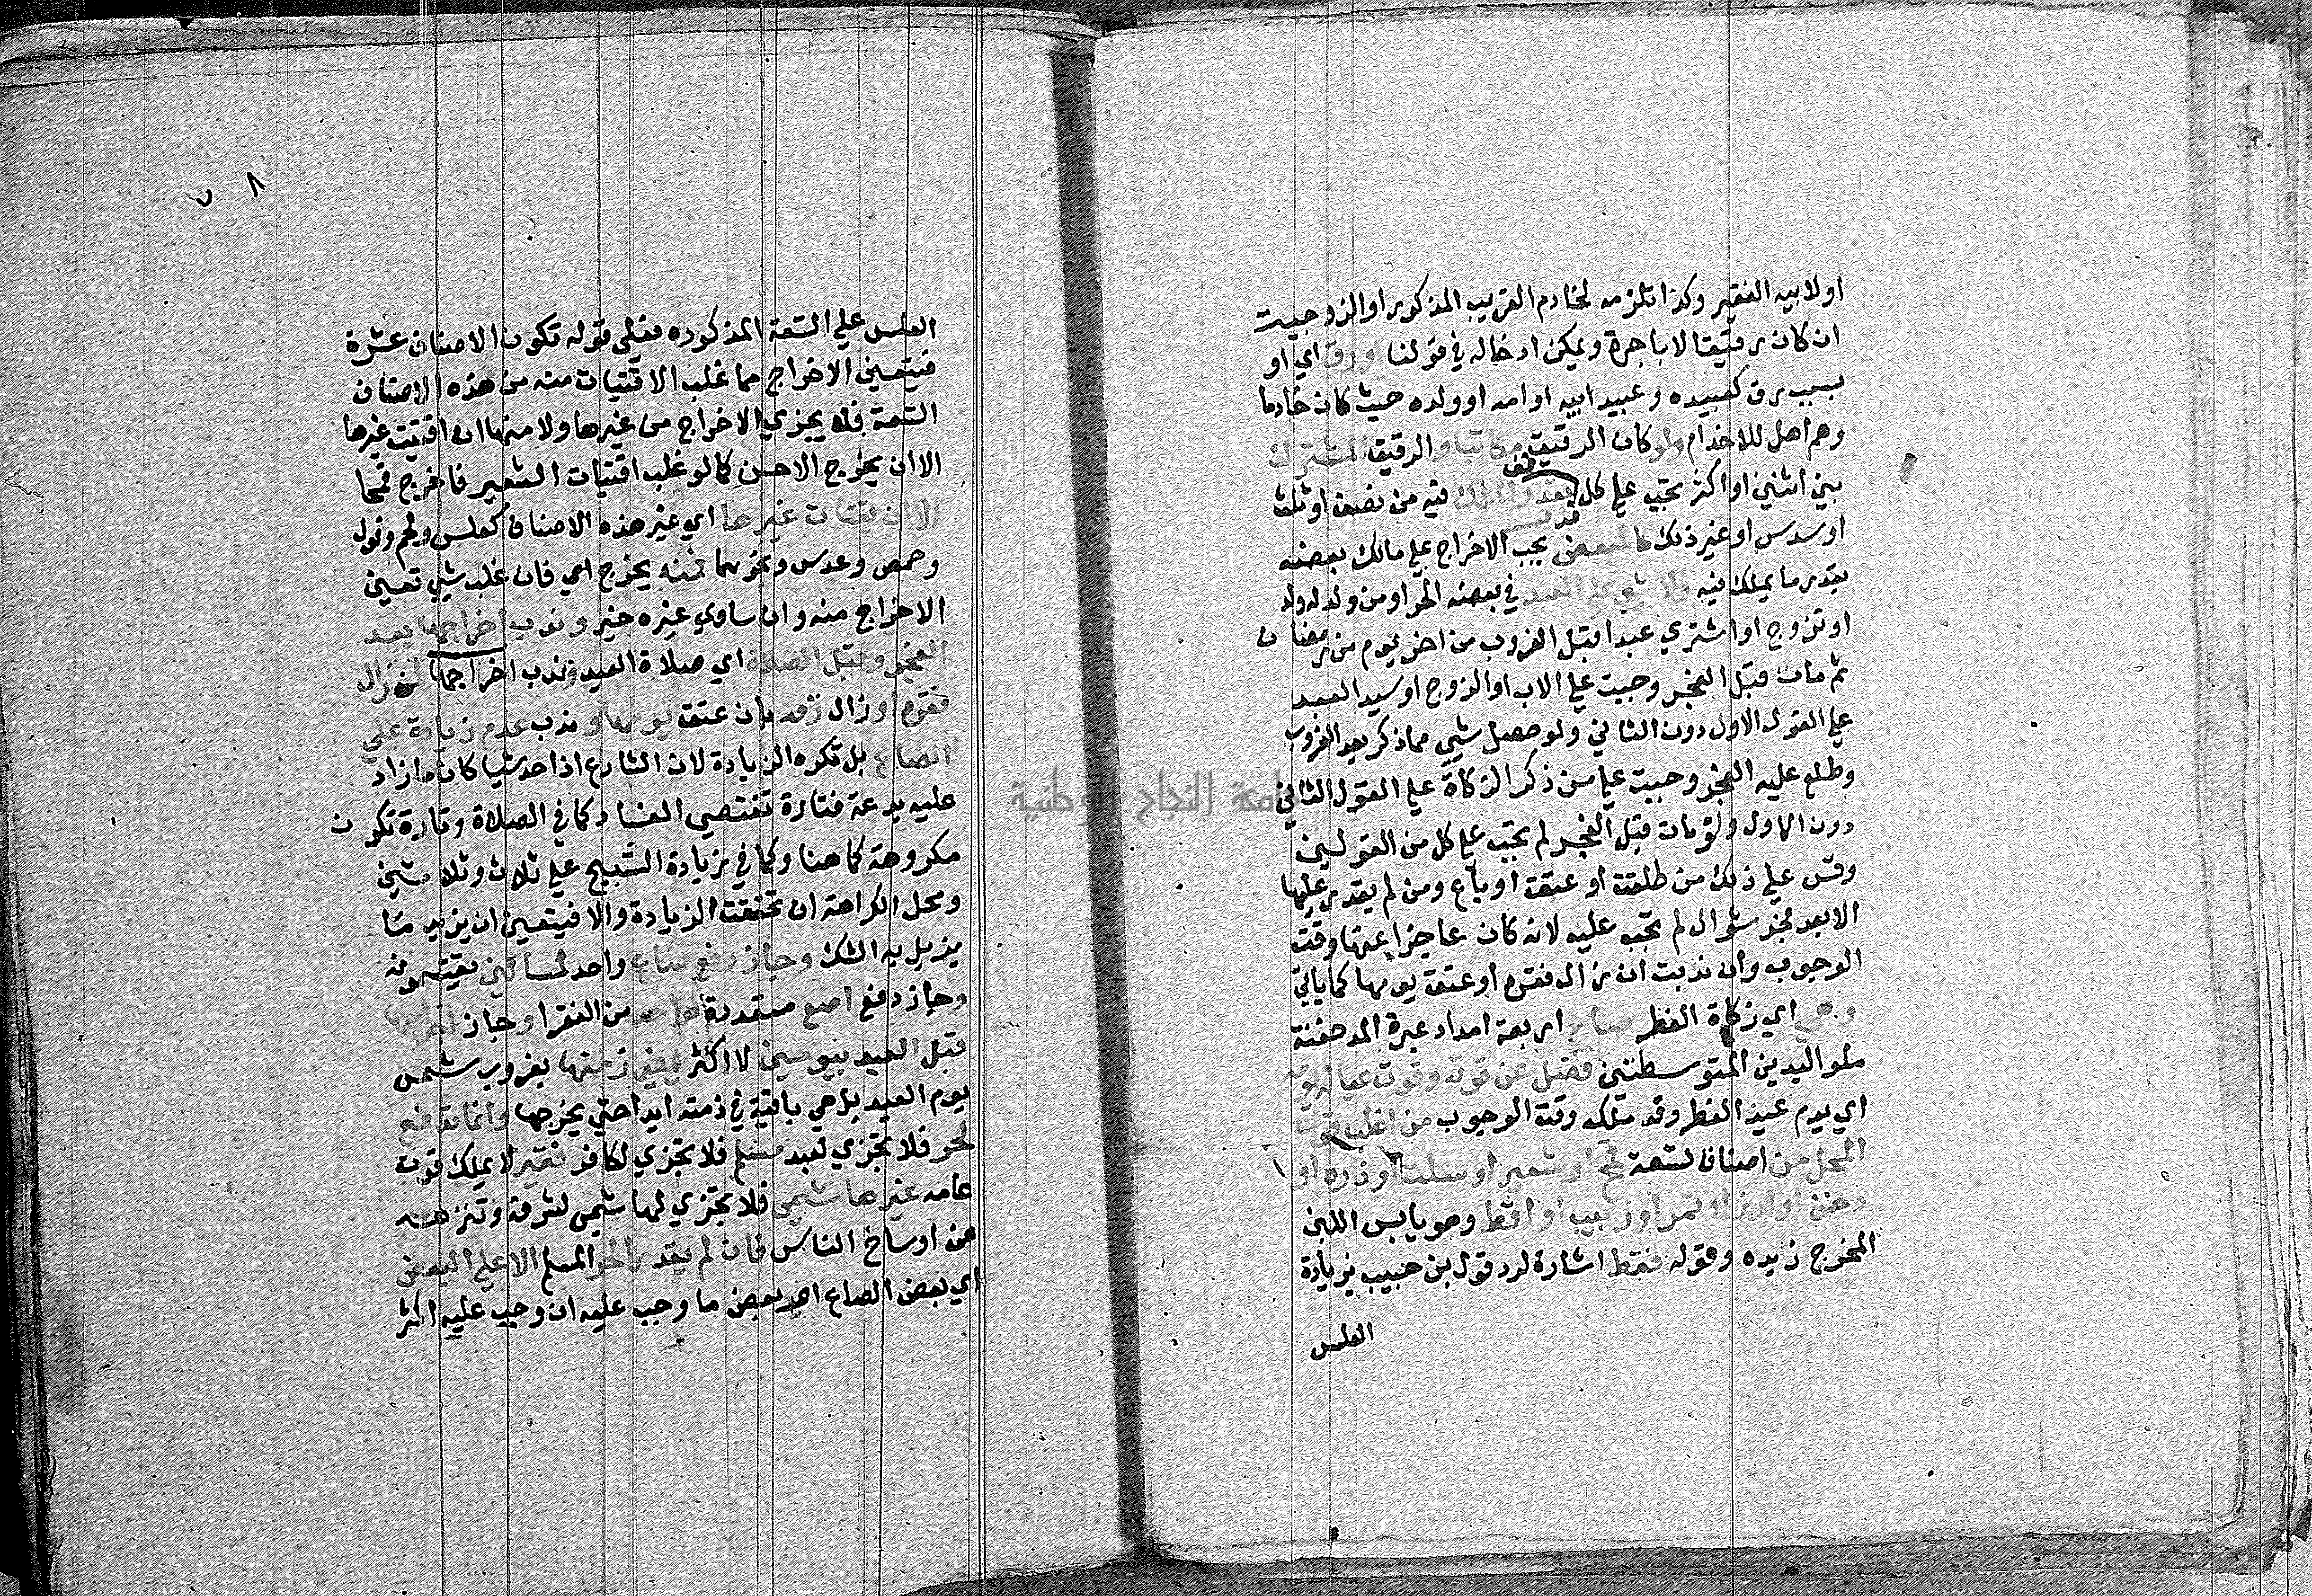 او لابيه الفقير وكذا تلزمه لخادم القريب المذكور او الزوجيت
ان كان رقيقا لا باجرة ويمكن ادخاله في قولنا او رق اي او
بسبب رق كعبيده وعبيد ابيه او امه او ولده حيث كان خادما
وهم اهل للاخدام ولو كان الرقيق مكاتبا والرقيق المشترك
بين اثنين او اكثر تجب علي كل بقدر الملك فيه من نصف او ثلث
او سدس او غير ذلك كالمبعض يجب الاخراج علي مالك بعضه
بقدر ما يملك فيه ولا شي علي العبد في بعضه الحر او من ولد له ولد
او تزوج او اشتري عبدا قبل الغروب من اخر يوم من رمضان
ثم مات قبل الفجر وجبت علي الاب او الزوج او سيد العبد
علي القول الاول دون الثاني ولو حصل شي مما ذكر بعد الغروب
وطلع عليه الفجر وجبت علي من ذكر الزكاة علي القول الثاني
دون الاول ولو مات قبل الفجر لم تجب علي كل من القولين
وقس علي ذلك من طلقت او عتقت او باع ومن لم يقدر عليها
الا بعد فجر شوال لم تجب عليه لانه كان عاجزا عنها وقت
الوجوب وان ندبت ان زال فقره او عتق يومها كما ياتي
وهي اي زكاة الفطر صاع اربعة امداد عبرة المد حفنة
ملو اليدين المتوسطتين فضل عن قوته وقوت عياله يومه
اي يوم عيد الفطر وقد ملكه وقت الوجوب من اغلب قوت
المحل من اصناف تسعة قمح او شعير او سلت او ذره او
دخن او ارز او تمر او زبيب او اقط وهو يابس اللبن
المخرج زبده وقوله فقط اشارة لرد قول بن حبيب بزيادة
العلس
٧٨
العلس علي التسعة المذكوره فعلي قوله تكون الاصناف عشرة
فيتعين الاخراج مما غلب الاقتيات منه من هذه الاصناف
التسعة فلا يجزي الاخراج من غيرها ولا منها ان اقتيت غيرها
الا ان يخرج الاحسن كما لو غلب اقتيات الشعير فاخرج قمحا
الا ان يقتات غيرها اي غير هذه الاصناف كعلس ولحم وفول
وحمص وعدس ونحوهما فمنه يخرج اي فان غلب شي تعين
الاخراج منه وان ساوي غيره خير وندب اخراجها بعد
الفجر وقبل الصلاة اي صلاة العيد وندب اخراجها لمن زال
فقره او زال رقه بان عتق يومها وندب عدم زيادة علي
الصاع بل تكره الزيادة لان الشارع اذا حد شيا كان ما زاد
عليه بدعة فتارة تقتضي الفساد كما في الصلاة وتارة تكون
مكروهة كما هنا وكما في زيادة التسبيح علي ثلاث وثلاثين
ومحل الكراهة ان تحققت الزيادة والا فيتعين ان يزيد ما
يزيل به الشك وجاز دفع صاع واحد لمساكين يقتسمونه
وجاز دفع اصع متعددة لواحد من الفقرا وجاز اخراجها
قبل العيد بيومين لا اكثر بمضي زمنها بغروب شمس
يوم العيد بل هي باقية في ذمته ابدا حتي يخرجها وانما تدفع
لحر فلا تجزي لعبد مسلم فلا تجزي لكافر فقير لا يملك قوت
عامه غير هاشمي فلا تجزي لهاشمي لشرفه وتنزهه
عن اوساخ الناس فان لم يقدر الحر المسلم الا علي البعض
اي بعض الصاع اي بعض ما وجب عليه ان وجب عليه اكثر